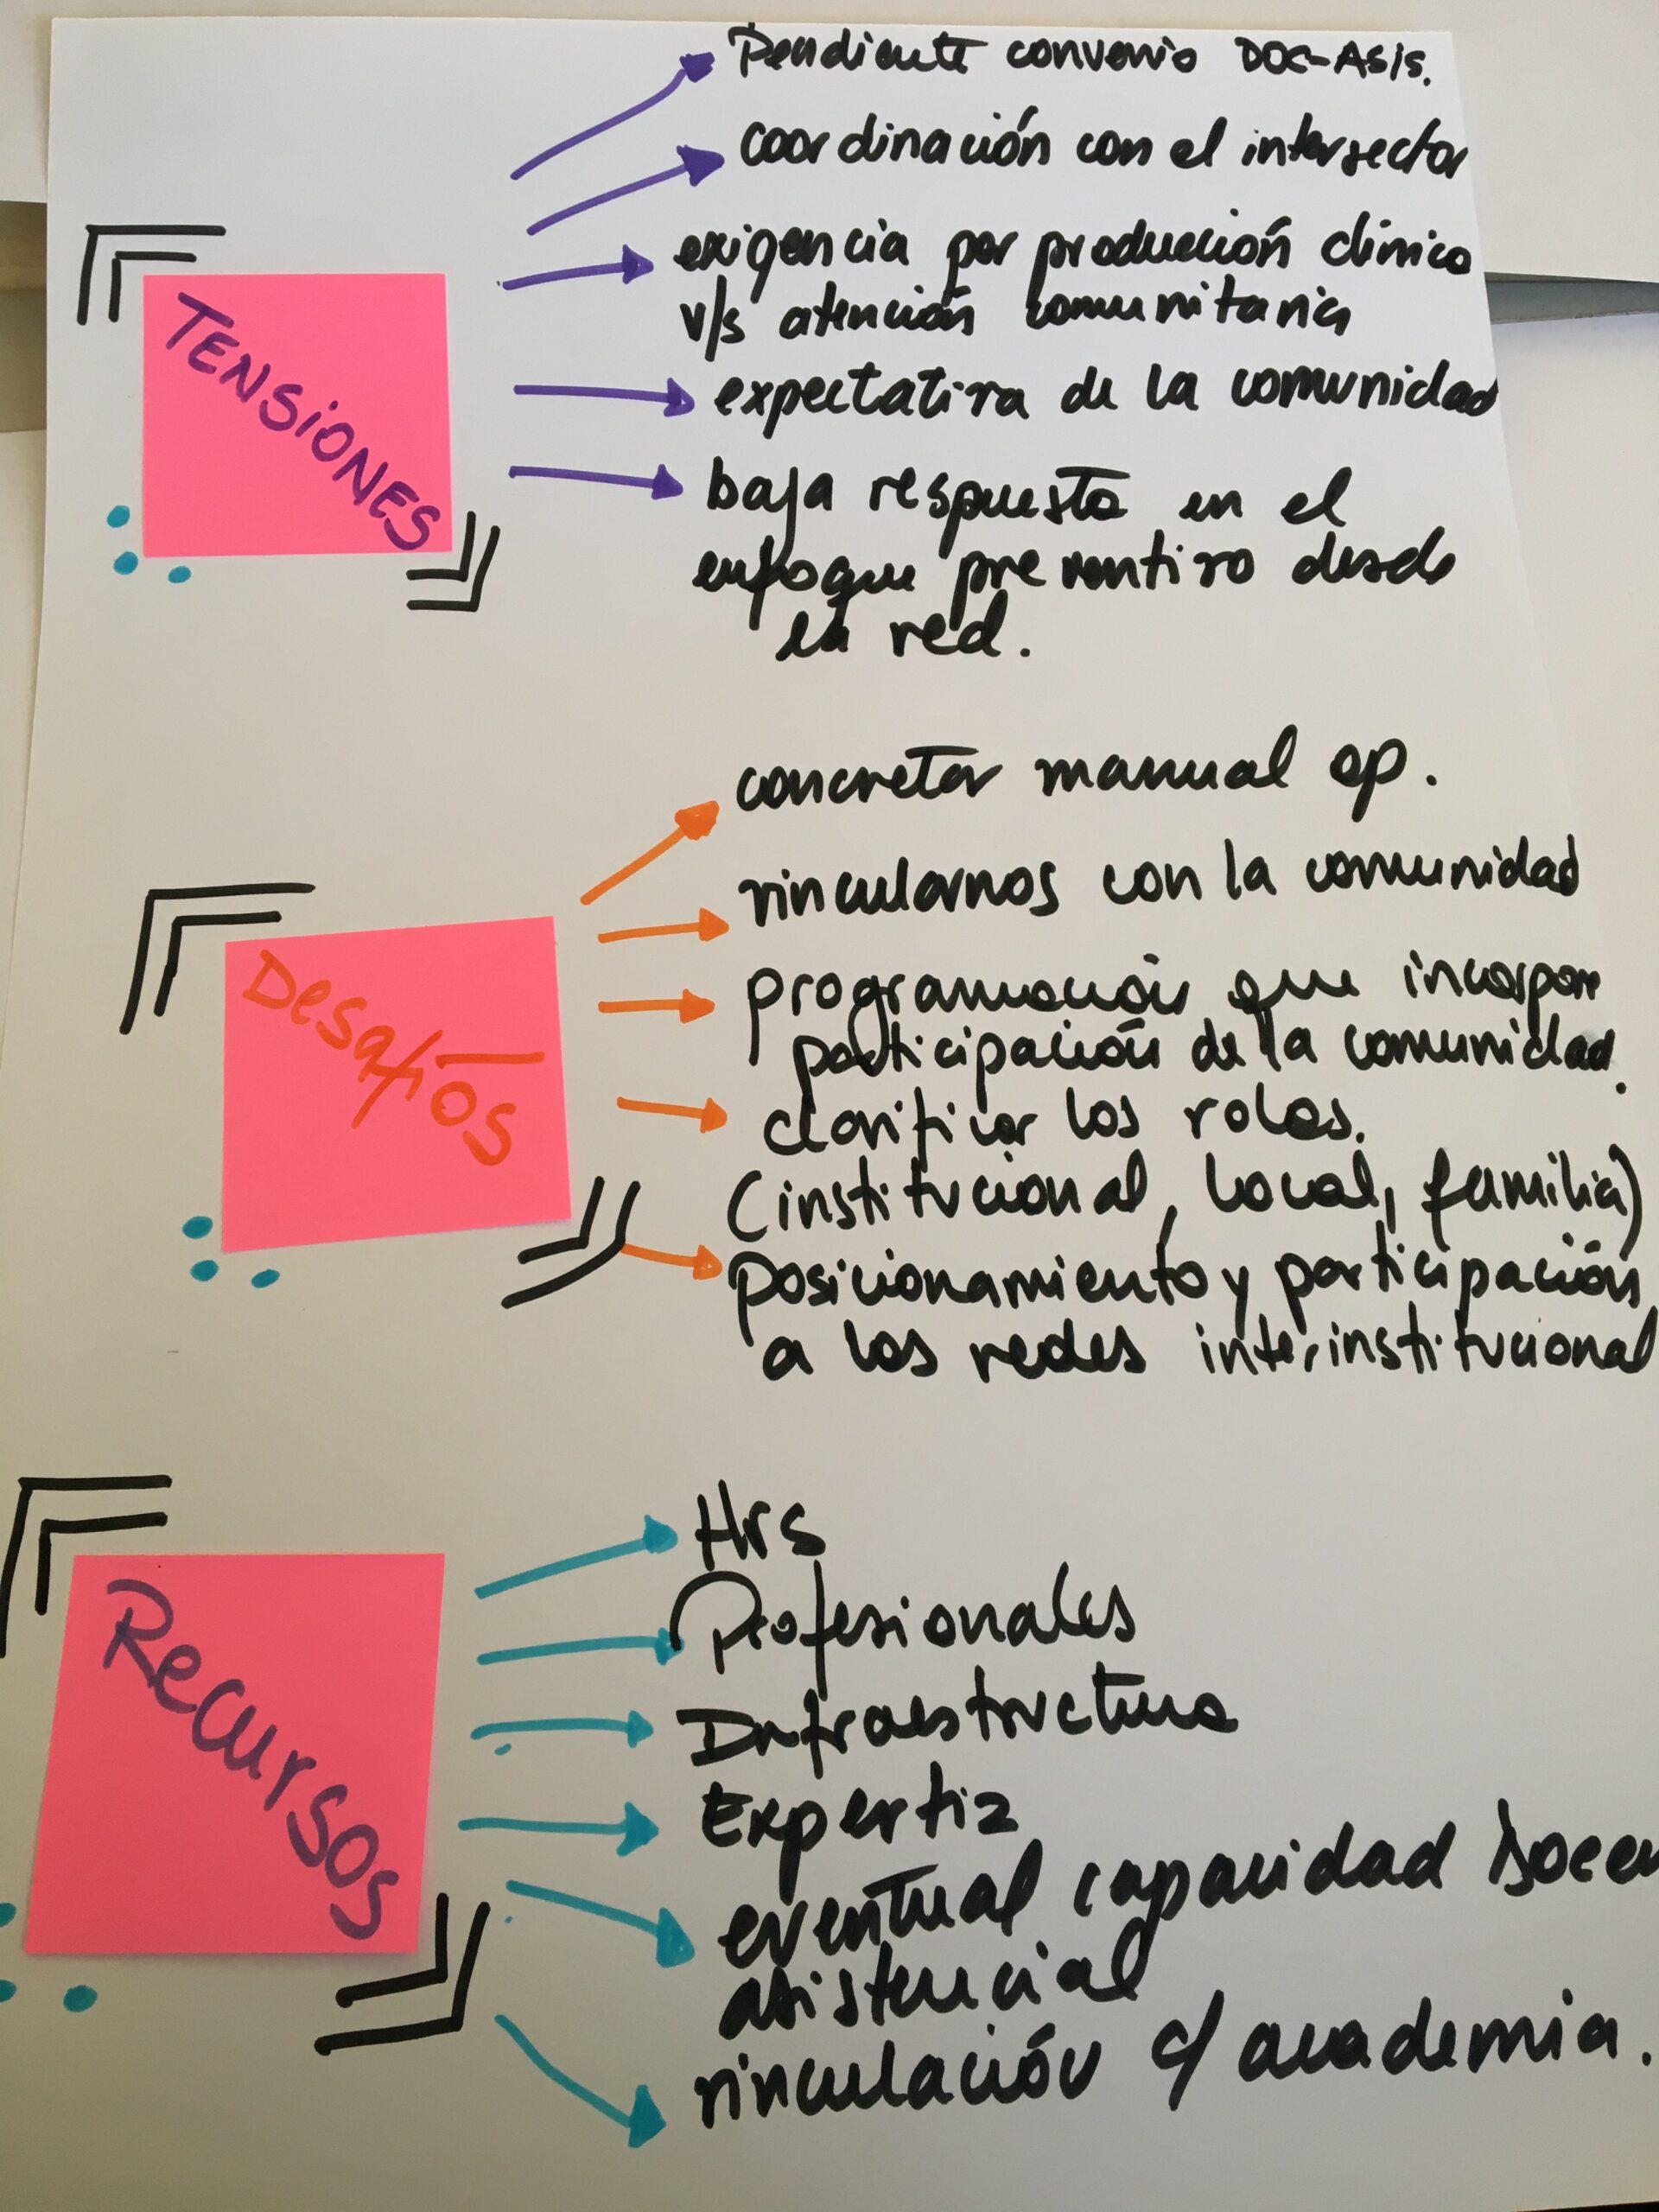 TENSIONES
Pendiente convenio DOC-ASIS.
coordinación con el intersector
exigencia por producción clínica
v/s atención comunitaria
expectativa de la comunidad
baja respuesta en el
enfoque preventivo desde
la red.
Desafíos
concretar manual op.
vincularnos con la comunidad
programación que incorpore
participación de la comunidad.
clarificar los roles.
(institucional, local, familia)
posicionamiento y participación
a las redes interinstitucional
Recursos
Hrs
Profesionales
Infraestructura
Expertiz
eventual capacidad Docen
asistencial
vinculación c/ academia.